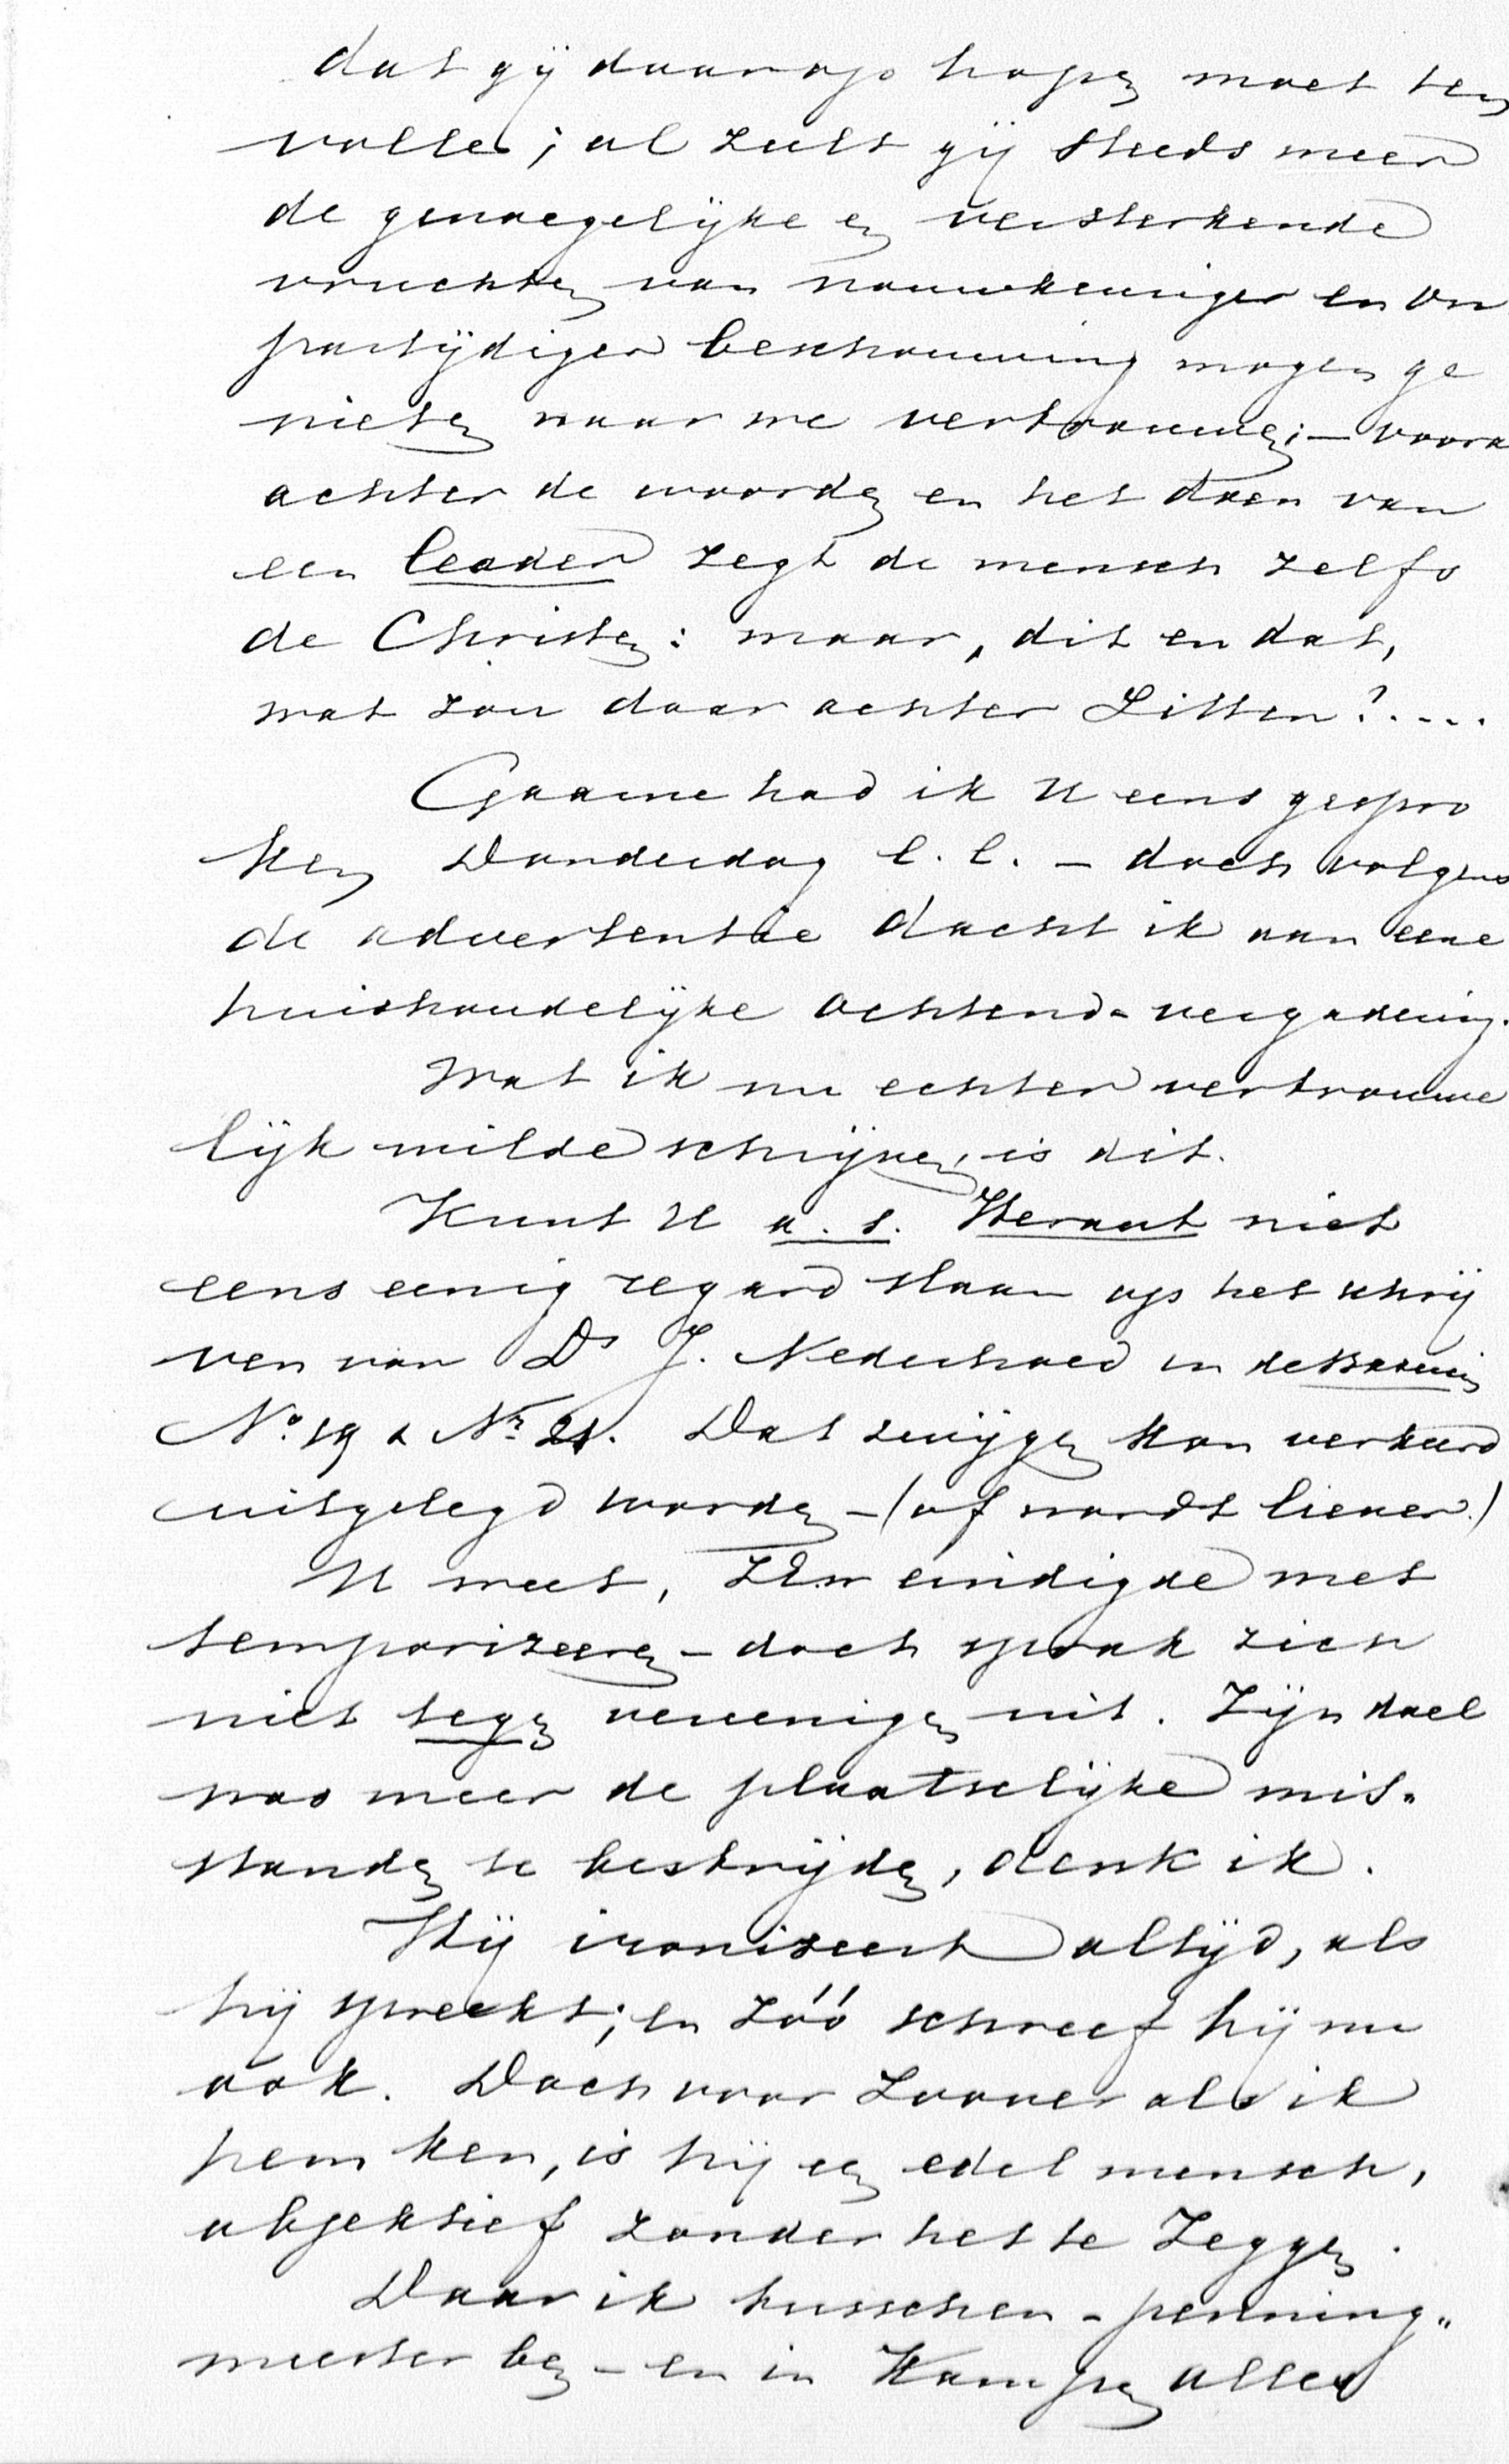 dat gij daarop hopen moet ten
volle; al zult gij steeds meer
de genoegelijke en versterkende
vruchten van nauwkeuriger en on
partijdiger beschouwing mogen ge
nieten naar we vertrouwen; – voora
achter de woorden en het doen van
een leader zegt de mensch zelfs
de Christen: maar, dit en dat,
wat zou daar achter zitten?....
Gaarne had ik U eens gespro
ken Donderdag l.l. – doch volgens
de advertentie dacht ik aan eene
huishoudelijke ochtend-vergadering.
Wat ik nu echter vertrouwe
lijk wilde schrijven, is dit.
Kunt U a.s. Heraut niet
eens eenig regard slaan op het schrij
ven van Ds J. Nederhoed in de Bazuin
No. 19 & Nr. 21. Dat zwijgen kon verkeerd
uitgelegd worden – (of wordt liever.)
U weet, ZEw eindigde met
temporizeeren – doch sprak zich
niet tegen vereenigen uit. Zijn doel
was meer de plaatselijke mis-
standen te bestrijden, denk ik.
Hij ironizeert altijd, als
hij spreekt; en zóó schreef hij nu
ook. Doch voor zoover als ik
hem ken, is hij een edel mensch,
objektief zonder het te zeggen.
Daar ik tusschen-penning-
meester ben – en in Kampen alles